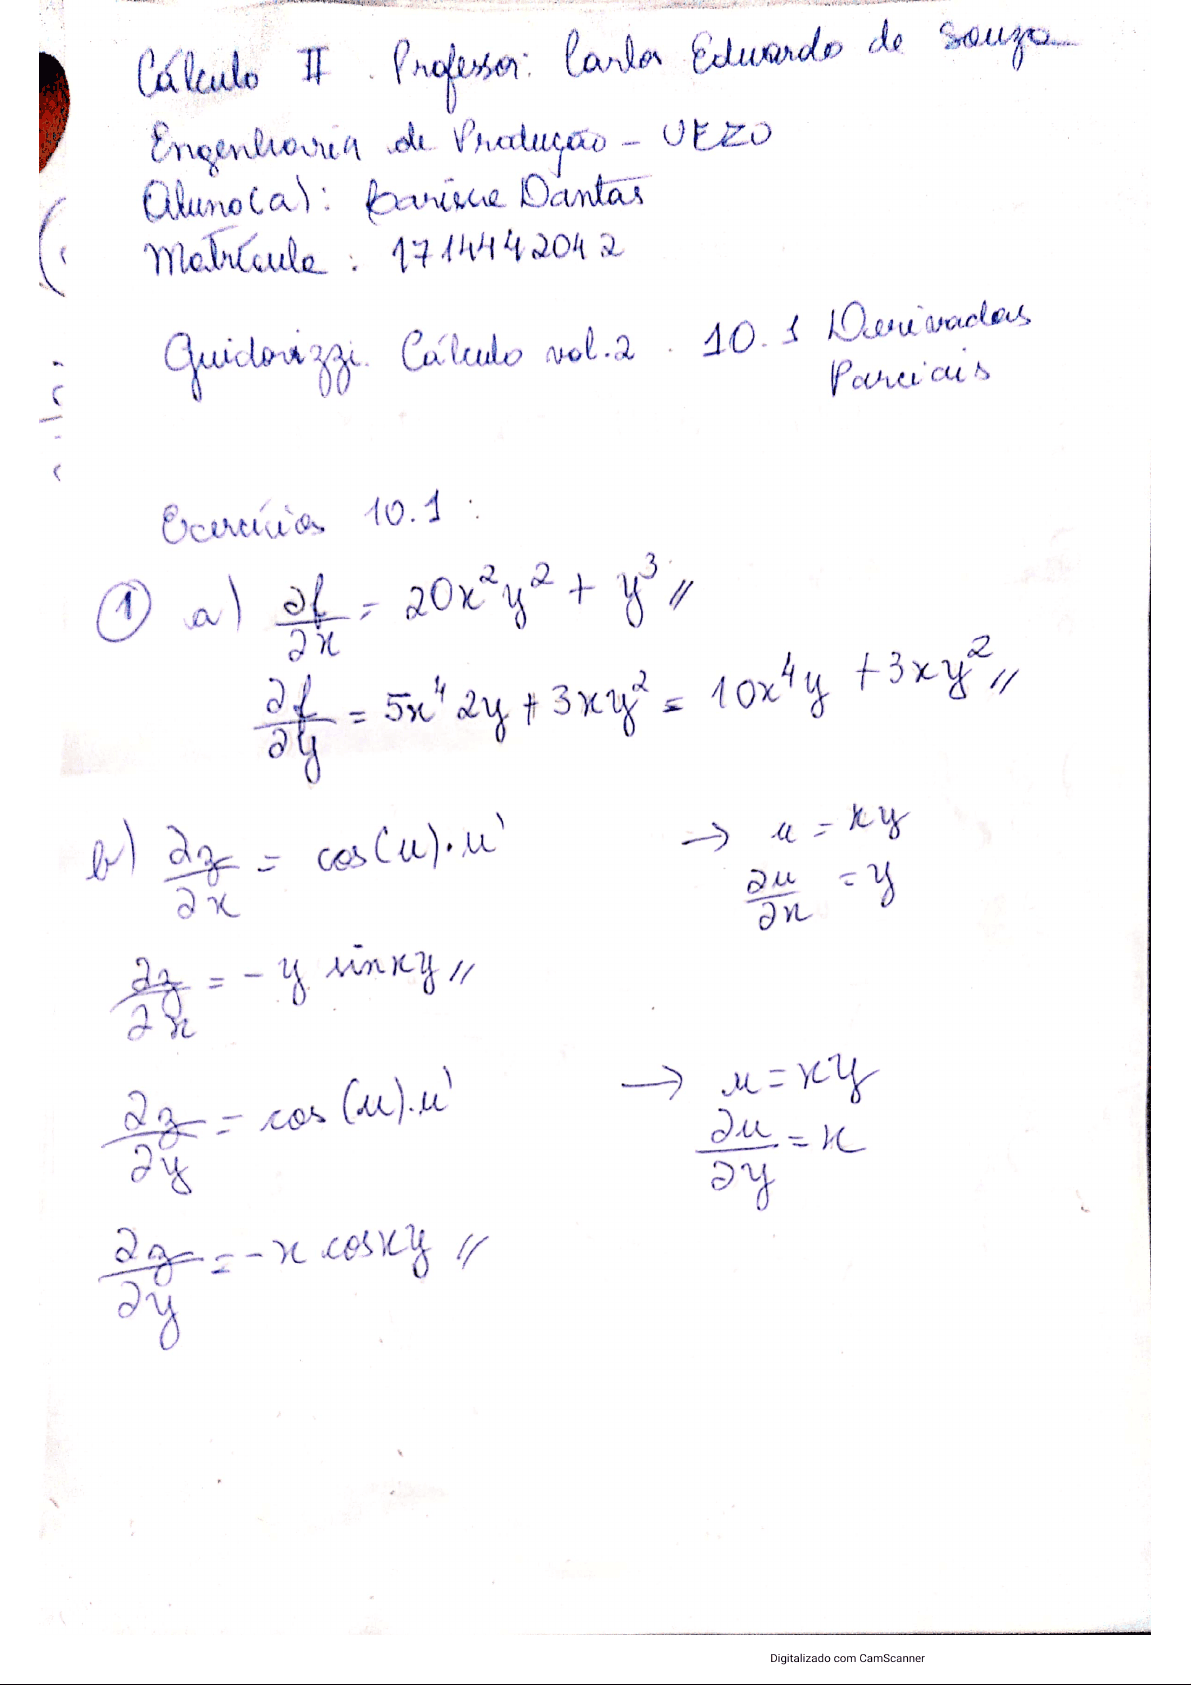 Cálculo II. Professor: Carlos Eduardo de Souza
Engenharia de Produção - UEZO
Aluno(a): Dantas
Matrícula: 1714442042
Guidorizzi. Cálculo vol.2. 10.1 Derivadas
Parciais
Exercícios 10.1:
① a) ∂f/∂x = 20x²y² + y³ //
∂f/∂y = 5x⁴ 2y + 3xy² = 10x⁴y + 3xy² //
b) ∂z/∂x = cos(u)·u' → u = xy
∂u/∂x = y
∂z/∂x = - y sinxy //
∂z/∂y = cos(u).u' → u = xy
∂u/∂y = x
∂z/∂y = - x cosxy //
Digitalizado com CamScanner